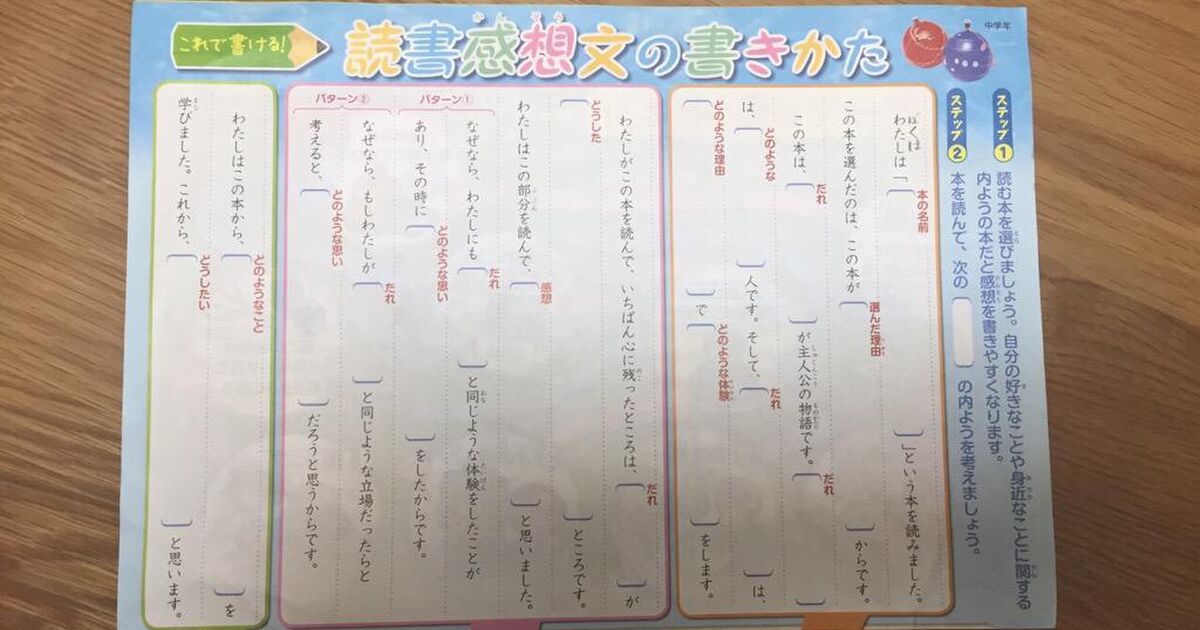 中学年
これで書ける!
読書感想文の書きかた
ステップ1
読む本を選びましょう。自分の好きなことや身近なことに関する
内ようの本だと感想を書きやすくなります。
ステップ2
本を読んで、次の[ ]の内ようを考えましょう。
ぼくは
わたしは「( )」という本を読みました。
本の名前
この本を選んだのは、この本が( )からです。
選んだ理由
この本は、( )が主人公の物語です。( )
だれ
だれ
は、( )人です。そして、( )は、
どのような
だれ
( )で( )をします。
どのような理由
どのような体験
わたしがこの本を読んで、いちばん心に残ったところは、( )が
だれ
( )ところです。
どうした
わたしはこの部分を読んで、( )と思いました。
感想
パターン①
なぜなら、わたしにも( )と同じような体験をしたことが
だれ
あり、その時に( )をしたからです。
どのような思い
パターン②
なぜなら、もしわたしが( )と同じような立場だったらと
だれ
考えると、( )だろうと思うからです。
どのような思い
わたしはこの本から、( )を
どのようなこと
学びました。これから、( )と思います。
どうしたい